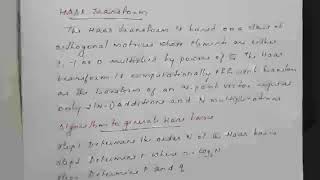 HAAR Transform
The Haar transform is based on a class of
orthogonal matrices whose elements are either
1, -1 or 0 multiplied by powers of √2. The Haar
transform is computationally efficient transform
as the transform of an N-point vector requires
only 2(N-1) additions and N multiplications
Algorithm to generate Haar basis
Step1 Determine the order N of the Haar basis
Step2 Determine n where n = log₂N
Step3 Determine P and q